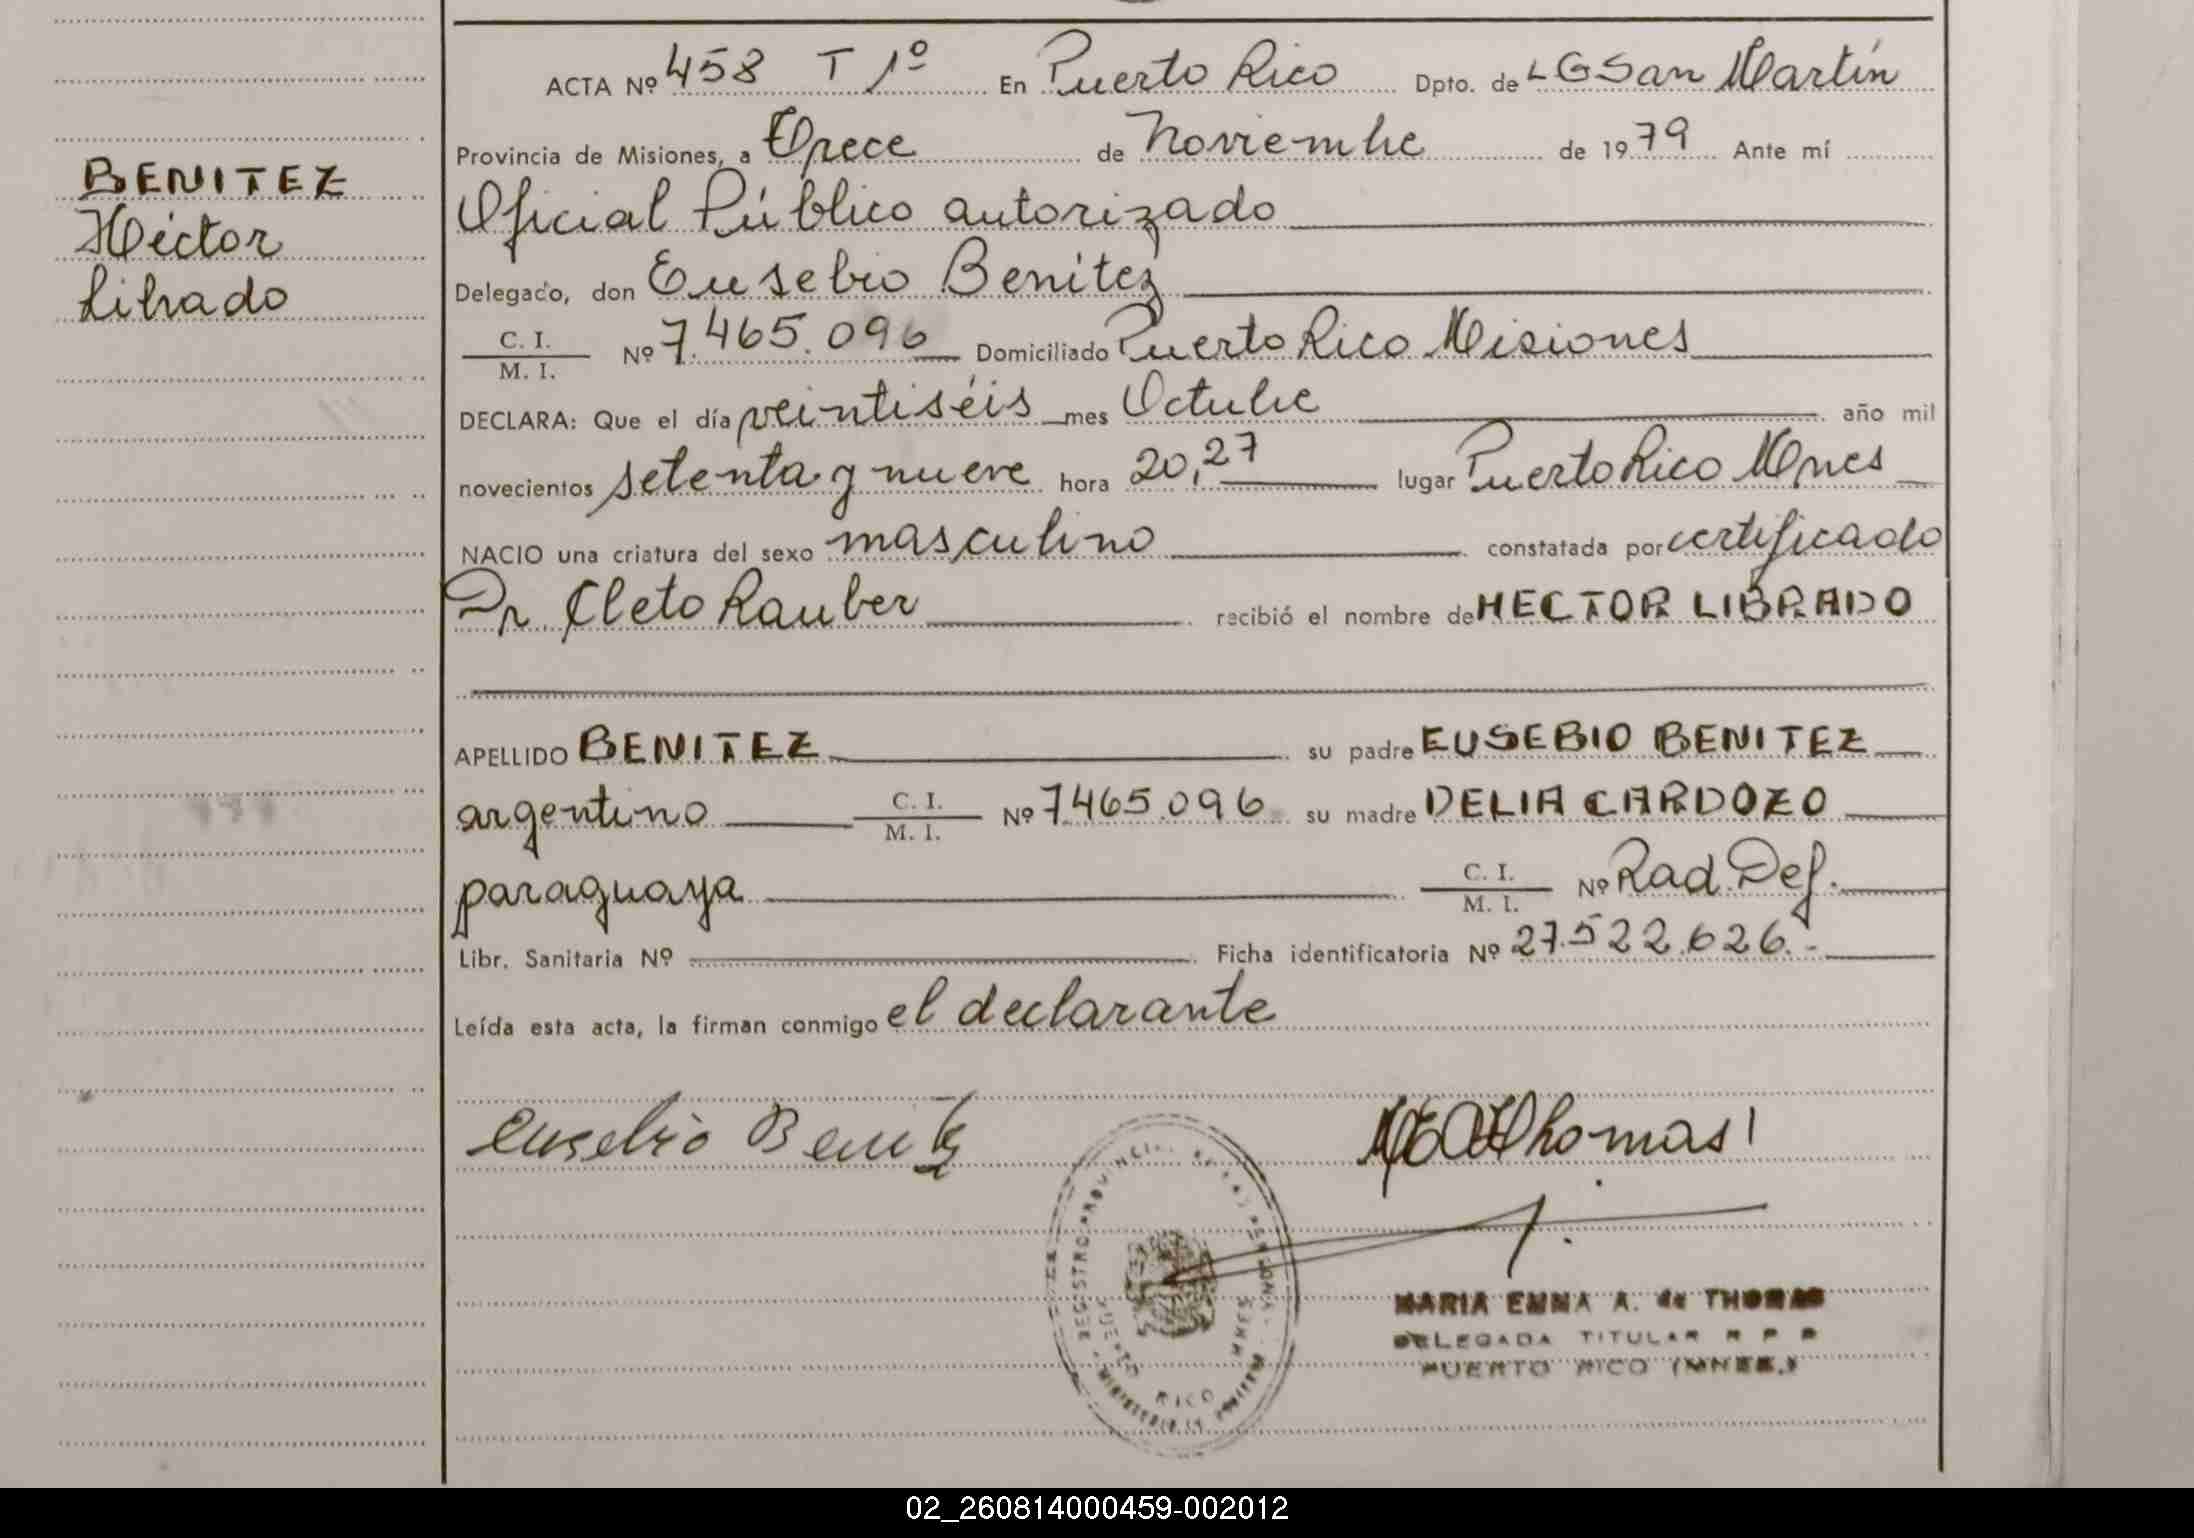 ACTA Nº 458 T 1º En Puerto Rico Dpto. de LG San Martín
Provincia de Misiones, a Trece de Noviembre de 1979 Ante mí
Oficial Público autorizado
Delegado, don Eusebio Benítez
C. I.
M. I.
Nº 7.465.096 Domiciliado Puerto Rico Misiones
DECLARA: Que el día veintiséis mes Octubre año mil
novecientos setenta y nueve hora 20,27 lugar Puerto Rico Mnes
NACIO una criatura del sexo masculino constatada por certificado
Dr. Cleto Rauber recibió el nombre de HECTOR LIBRADO
APELLIDO BENITEZ su padre EUSEBIO BENITEZ
argentino C. I. M. I. Nº 7.465.096 su madre DELIA CARDOZO
paraguaya C. I. M. I. Nº Rad. Def.
Libr. Sanitaria Nº Ficha identificatoria Nº 27.522.626.-
Leída esta acta, la firman conmigo el declarante
BENITEZ
Héctor
Librado
Eusebio Benitez
Thomas
REGISTRO PROVINCIAL DE LAS PERSONAS
PUERTO RICO MNES
MARIA EMMA A. de THOMAS
DELEGADA TITULAR R P P
PUERTO RICO (MNES.)
02_260814000459-002012